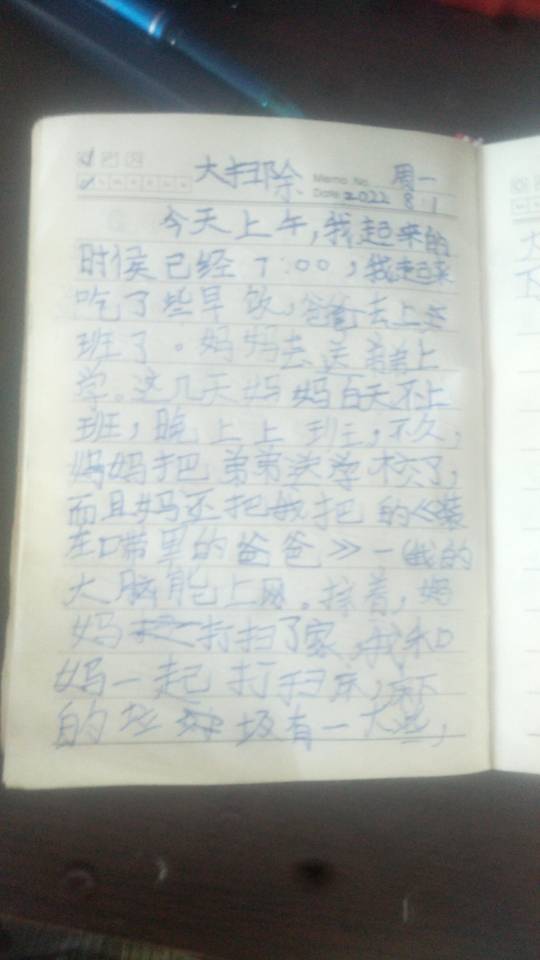 大扫除 Memo No. 周一
Date 2022 8.1
今天上午,我起来的
时侯已经7:00,我起来
吃了些早饮,爸爸去上
班了。妈妈去送弟弟上
学。这几天妈妈白天不上
班,晚上上班,不久,
妈妈把弟弟送学校了,
而且妈还把我把的《装
在口袋里的爸爸》一《我的
大脑能上网。接着,妈
妈打扫了家,我和
妈一起打扫床,床下
的垃圾有一大些,